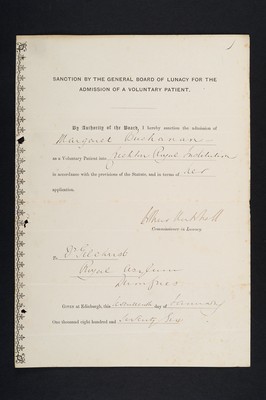 SANCTION BY THE GENERAL BOARD OF LUNACY FOR THE
ADMISSION OF A VOLUNTARY PATIENT.
By Authority of the Board, I hereby sanction the admission of
Margaret Buchanan
as a Voluntary Patient into Crichton Royal Institution
in accordance with the provisions of the Statute, and in terms of her
application.
Commissioner in Lunacy
To
Dr Gilchrist
Royal Asylum
Dumfries
Given at Edinburgh, this day of January
One thousand eight hundred and Seventy Six